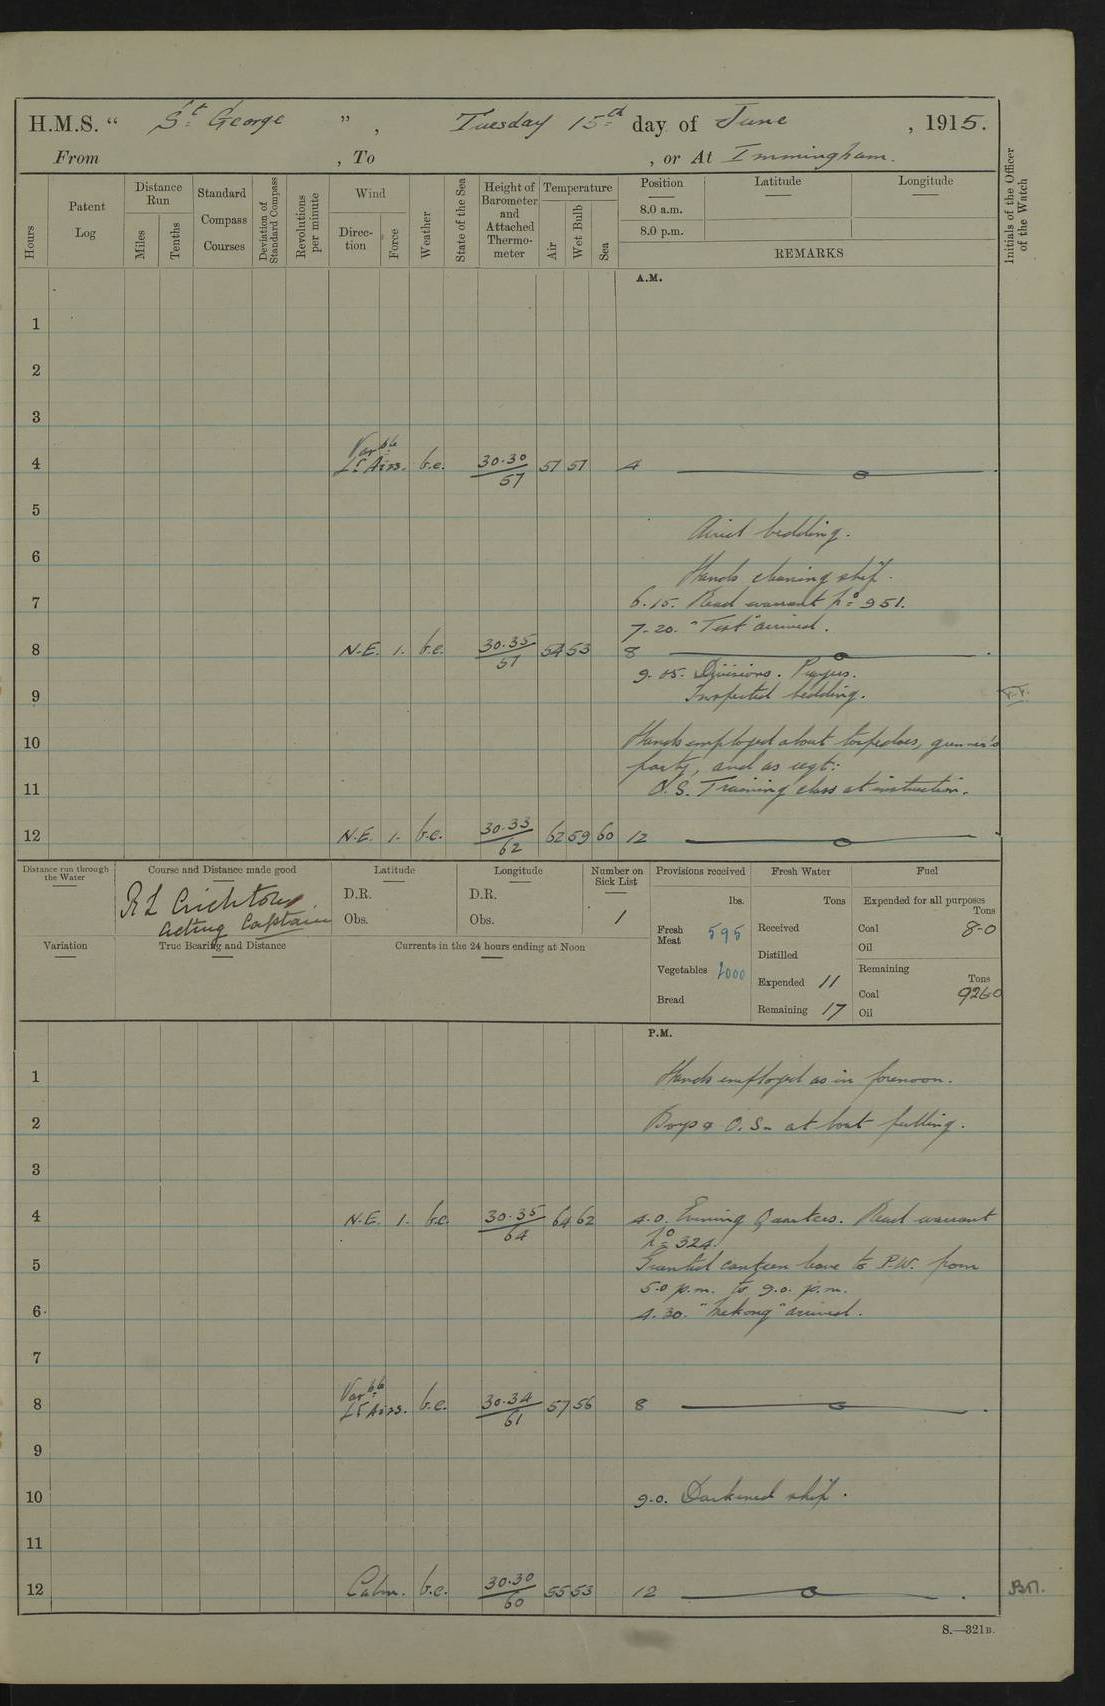 H.M.S. “ St. George ” , Tuesday 15th day of June , 1915.
From , To , or At Immingham.
Hours
Patent Log
Distance Run
Miles
Tenths
Standard Compass Courses
Deviation of Standard Compass
Revolutions per minute
Wind
Direc- tion
Force
Weather
State of the Sea
Height of Barometer and Attached Thermo- meter
Temperature
Air
Wet Bulb
Sea
Position
8.0 a.m.
8.0 p.m.
Latitude
Longitude
REMARKS
Initials of the Officer of the Watch
A.M.
1
2
3
4 Varble Lt Airs. b.c. 30.30/57 57 57 4
5
Aired bedding.
6
Hands cleaning ship.
7 6.15. Read warrant No 951.
7-20. "Test" arrived.
8 N.E. 1. b.c. 30.35/57 54 53 8
9.05. Divisions. Prayers.
9 Inspected bedding.
10 Hands employed about torpedoes, gunner's
party, and as reqt:
11 O.S. Training class at instruction.
12 N.E. 1. b.c. 30.33/62 62 59 60 12
Distance run through the Water
Course and Distance made good
R L Crichton
Acting Captain
Latitude
D.R.
Obs.
Longitude
D.R.
Obs.
Number on Sick List
1
Provisions received
lbs.
Fresh Meat 595
Vegetables 2000
Bread
Fresh Water
Tons
Received
Distilled
Expended 11
Remaining 17
Fuel
Expended for all purposes
Tons
Coal 8-0
Oil
Remaining
Tons
Coal 926-0
Oil
Variation
True Bearing and Distance
Currents in the 24 hours ending at Noon
P.M.
1 Hands employed as in forenoon.
2 Boys & O.S. at boat pulling.
3
4 N.E. 1. b.c. 30.35/64 64 62 4.0. Evening Quarters. Read warrant
No 324.
5 Granted canteen leave to P.W. from
5.0 p.m. to 9.0. p.m.
6 4.30. "Mekong" arrived.
7
8 Varble Lt Airs. b.c. 30.34/61 57 56 8
9
10 9.0. Darkened ship.
11
12 Calm. b.c. 30.30/60 55 53 12
8.—321B.